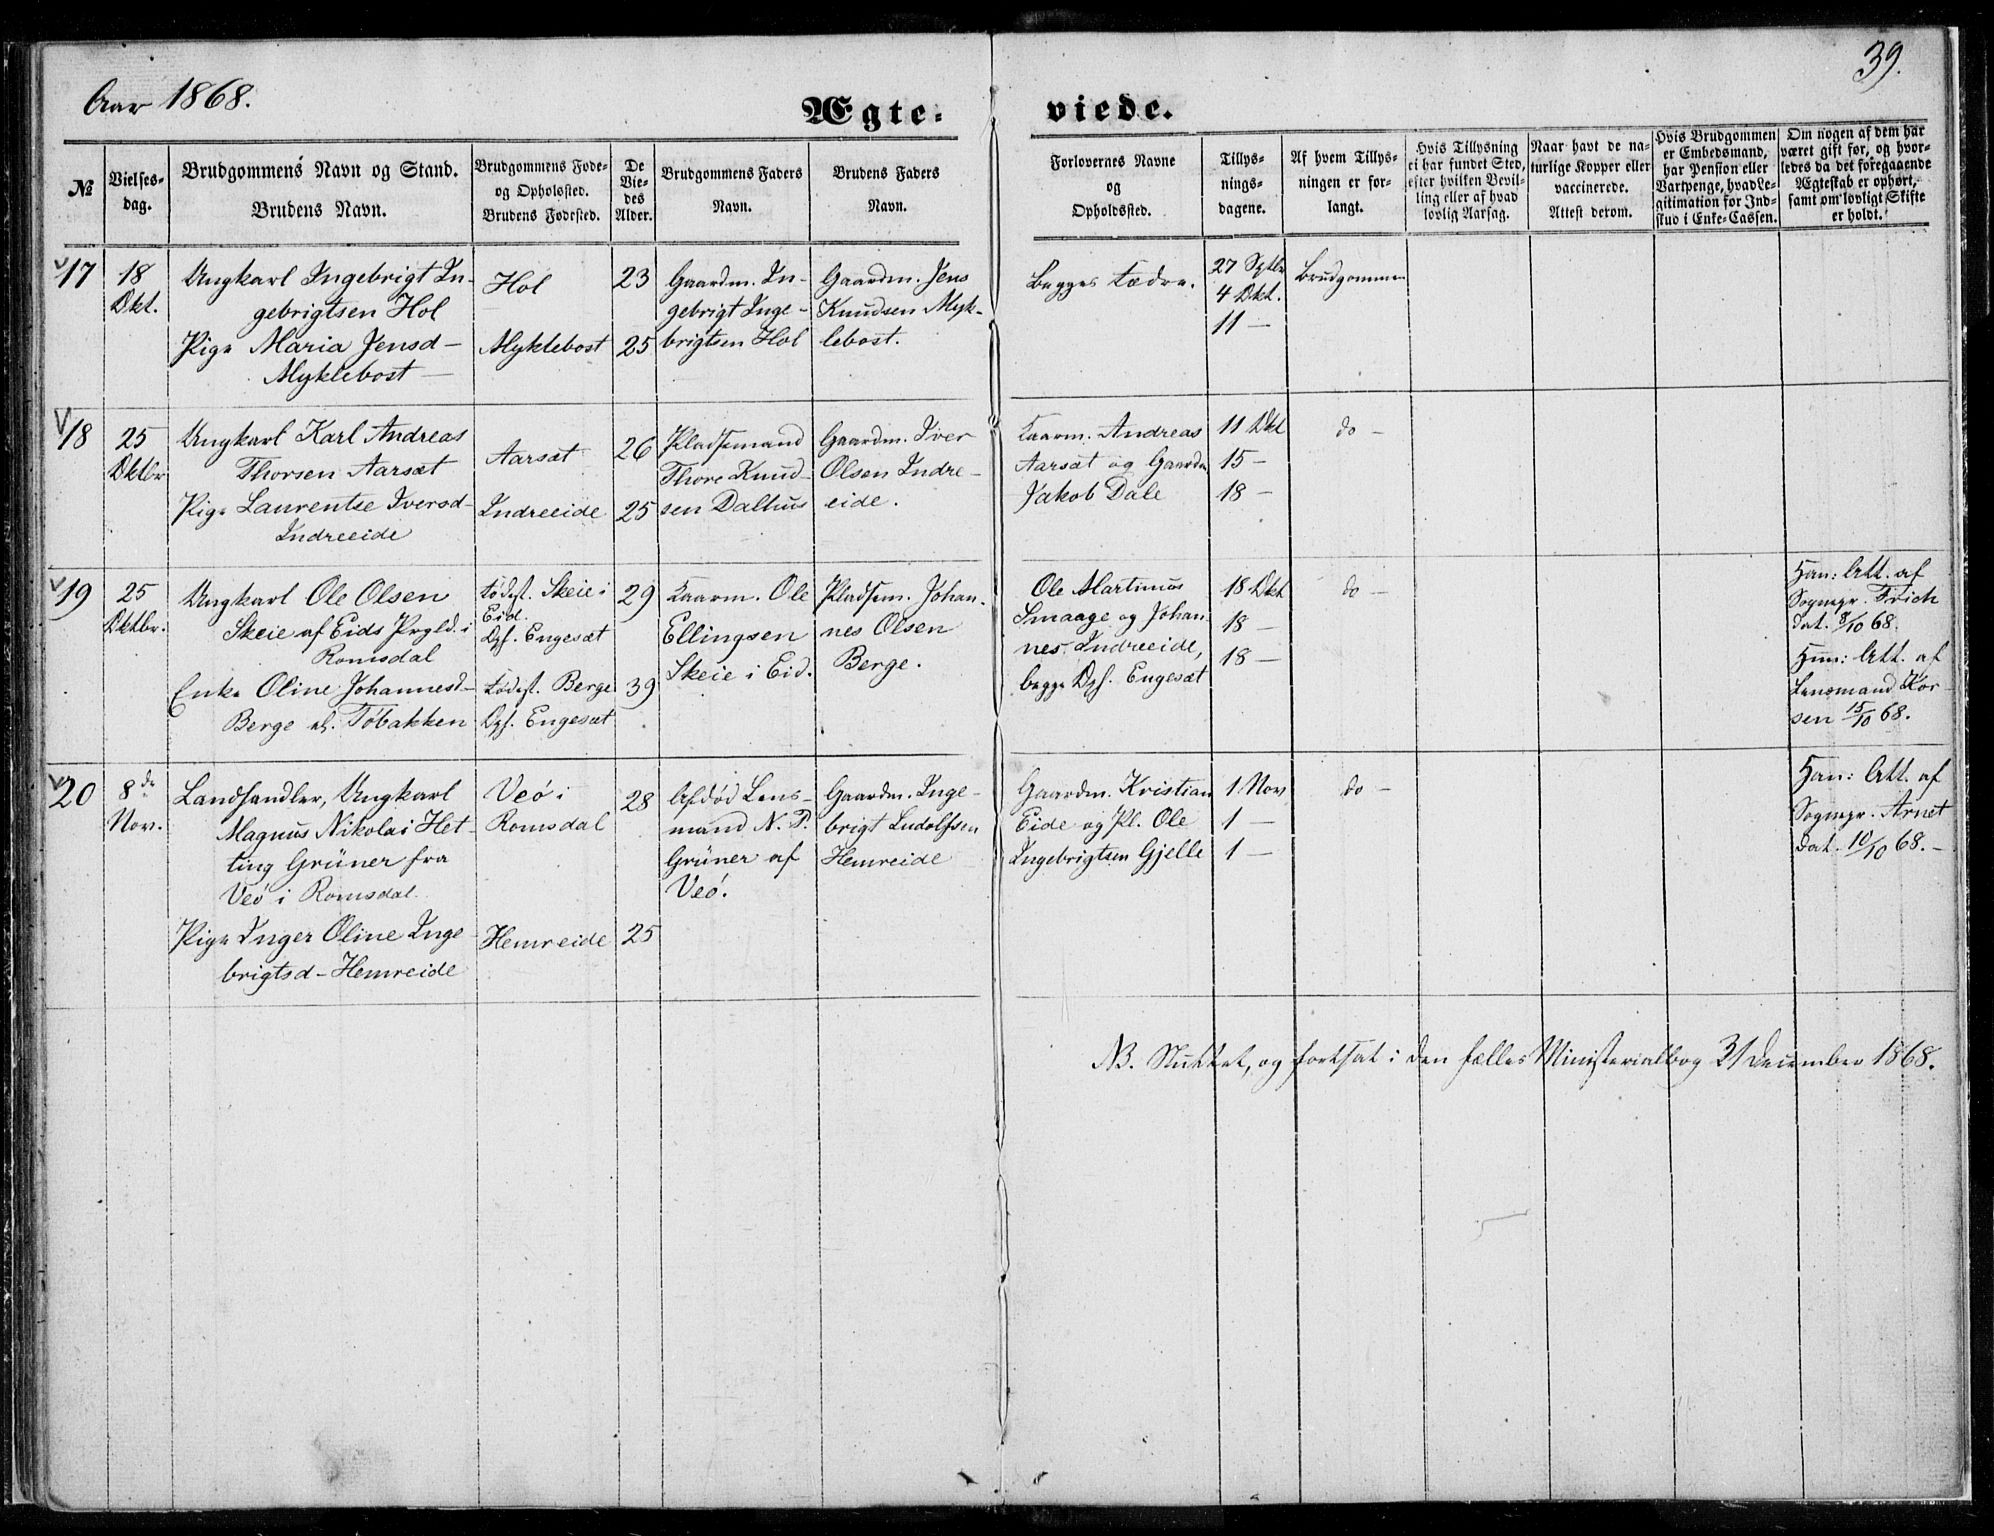 Aar 1868.
39.
Ægte-
viede.
№
Vielses-
dag.
Brudgommens Navn og Stand.
Brudens Navn.
Brudgommens Føde-
og Opholdssted.
Brudens Fødested.
De
Vie-
des
Alder.
Brudgommens Faders
Navn.
Brudens Faders
Navn.
Forlovernes Navne
og
Opholdssted.
Tillys-
nings-
dagene.
Af hvem Tillys-
ningen er for-
langt.
Hvis Tillysning
ei har fundet Sted,
efter hvilken Bevil-
ling eller af hvad
lovlig Aarsag.
Naar havt de na-
turlige Kopper eller
vaccinerede.
Attest derom.
Hvis Brudgommen
er Embedsmand,
har Pension eller
Vartpenge, hvad Le-
gitimation for Ind-
skud i Enke-Cassen.
Om nogen af dem har
været gift før, og hvor-
ledes da det foregaaende
Ægteskab er ophørt,
samt om lovligt Skifte
er holdt.
17
18
Okt.
Ungkarl Ingebrigt In-
gebrigtsen Hol
Pige Maria Jensd-
Myklebost
Hol
Myklebost
23
25
Gaardm. In-
gebrigt Inge-
brigtsen Hol
Gaardm. Jens
Knudsen Myk-
lebost.
Begges Fædre.
27 Sptbr
4 Okt.
11 —
Brudgommen
18
25
Oktbr
Ungkarl Karl Andreas
Thorsen Aarsæt
Pige Laurentse Iversd-
Indreeide
Aarsæt
Indreeide
26
25
Pladsemand
Thore Knud-
sen Dalhus
Gaardm. Iver
Olsen Indre-
eide.
Kaarm. Andreas
Aarsæt og Gaardm
Jakob Dale
11 Okt
15 —
18 —
do —
19
25
Oktbr.
Ungkarl Ole Olsen
Skeie af Eids Prgld. i
Romsdal
Enke Oline Johannesd-
Berge al. Töbakken
Födest. Skeie i
Eid.
Oph. Engesæt
Födest. Berge
Oph. Engesæt
29
39
Kaarm. Ole
Ellingsen
Skeie i Eid.
Pladsem. Johan-
nes Olsen
Berge.
Ole Martinus
Smaage og Johan-
nes Indreeide,
begge Oph. Engesæt
18 Okt
18 —
18 —
do —
Han: Att. af
Sognepr. Frich
dat. 8/10 68.
Hun: Att. af
Lensmand Kor-
sen 15/10 68.
20
8de
Nov.
Landhandler, Ungkarl
Magnus Nikolai Het-
ting Grüner fra
Veö i Romsdal.
Pige Inger Oline Inge-
brigtsd- Hemreide
Veö i
Romsdal
Hemreide
28
25
Afdöd Lens-
mand N. P.
Grüner af
Veö.
Gaardm. Inge-
brigt Ludolfsen
Hemreide
Gaardm. Kristian
Eide og Pl. Ole
Ingebrigtsen Gjelle
1 Nov
1 —
1 —
do —
Han: Att. af
Sognepr. Arnet
dat. 10/10 68. —
NB. Sluttet, og fortsat i den fælles Ministerialbog 31 December 1868.